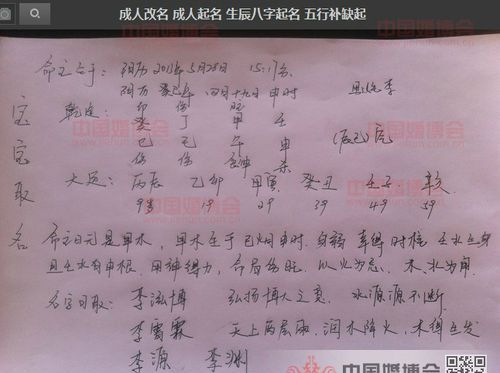 成人改名 成人起名 生辰八字起名 五行补缺起
命主生于：阳历2013年5月28日 15:17分 姓李
阴历 癸巳年 四月十九日 申时
乾造：印 伤 壬
癸 丁 甲 壬
巳 巳 午 申 (辰巳)
宝宝取名
大运：丙辰 乙卯 甲寅 癸丑 壬子 辛亥
9 19 29 39 49 59
命主日元是甲木，甲木生于巳火申时，身弱
且壬水有申根，用神得力，以火为忌，木水为用
名字可取：李泓博 弘扬博大之意，水源源不断
李雲霖 天上两层雨，润水降火，木得生发
李源 李渊
中国婚博会
www.jiehun.com.cn